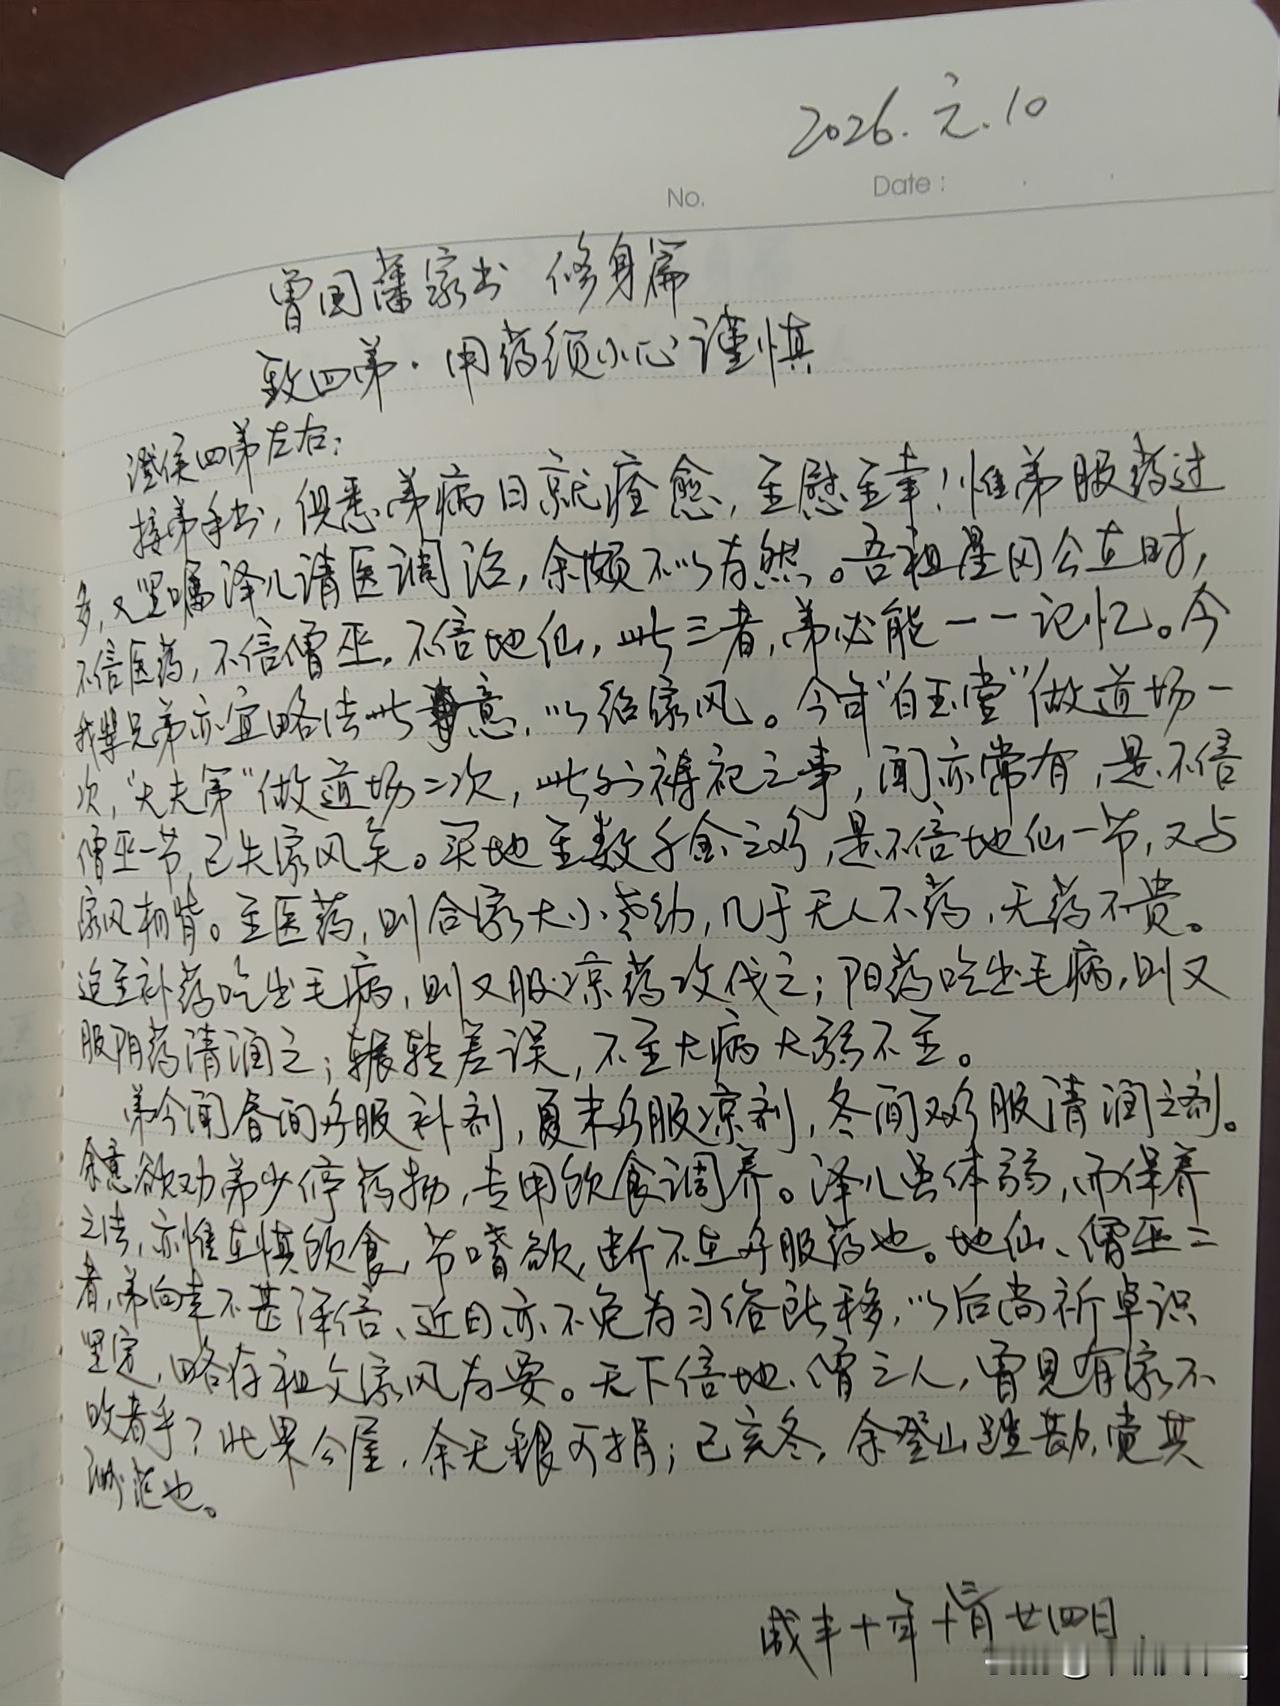 2026.元.10
No.
Date:
曾国藩家书 修身篇
致四弟·用药须小心谨慎
澄侯四弟左右：
接弟手书，俱悉弟病日就痊愈，至慰至幸！惟弟服药过
多，又坚嘱泽儿请医调治，余颇不以为然。吾祖星冈公在时，
不信医药，不信僧巫，不信地仙，此三者，弟必能一一记忆。今
我辈兄弟亦宜略法此意，以绍家风。今年"白玉堂"做道场一
次，"大夫第"做道场二次，此外祷祀之事，闻亦常有，是不信
僧巫一节，已失家风矣。买地至数千金之多，是不信地仙一节，又与
家风相背。至医药，则合家大小老幼，几于无人不药，无药不贵。
迨至补药吃出毛病，则又服凉药攻伐之；阳药吃出毛病，则又
服阴药清润之；辗转差误，不至大病大弱不至。
弟今闻春间多服补剂，夏末多服凉剂，冬间又多服清润之剂。
余意欲劝弟少停药物，专用饮食调养。泽儿虽体弱，而保养
之法，亦惟在慎饮食，节嗜欲，断不在多服药也。地仙、僧巫二
者，弟向来不甚深信、近日亦不免为习俗所移，以后尚祈卓识
坚定，略存祖父家风为要。天下信地、僧之人，曾见有家不
败者乎？此果公屋，余无银可捐；己亥冬，余登山踏勘，觉其
渺茫也。
咸丰十年十二月廿四日